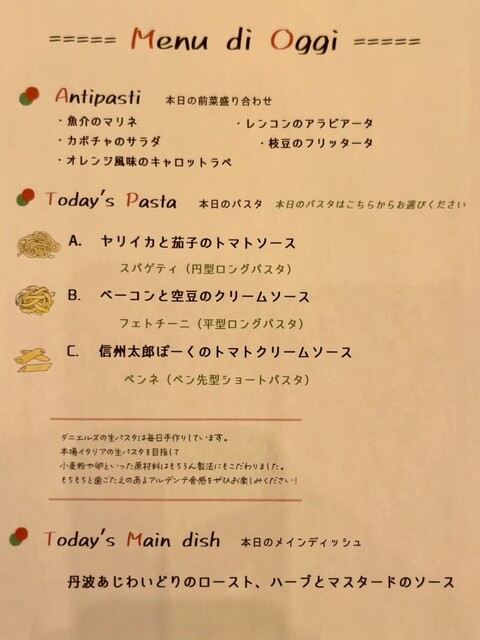 ===== Menu di Oggi =====
Antipasti 本日の前菜盛り合わせ
・魚介のマリネ ・レンコンのアラビアータ
・カボチャのサラダ ・枝豆のフリッタータ
・オレンジ風味のキャロットラペ
Today's Pasta 本日のパスタ 本日のパスタはこちらからお選びください
A. ヤリイカと茄子のトマトソース
スパゲティ（円型ロングパスタ）
B. ベーコンと空豆のクリームソース
フェトチーニ（平型ロングパスタ）
C. 信州太郎ぽーくのトマトクリームソース
ペンネ（ペン先型ショートパスタ）
ダニエルズの生パスタは毎日手作りしています。
本場イタリアの生パスタを目指して
小麦粉や卵といった原材料はもちろん製法にもこだわりました。
もちもちと歯ごたえのあるアルデンテ食感をぜひお楽しみください！
Today's Main dish 本日のメインディッシュ
丹波あじわいどりのロースト、ハーブとマスタードのソース